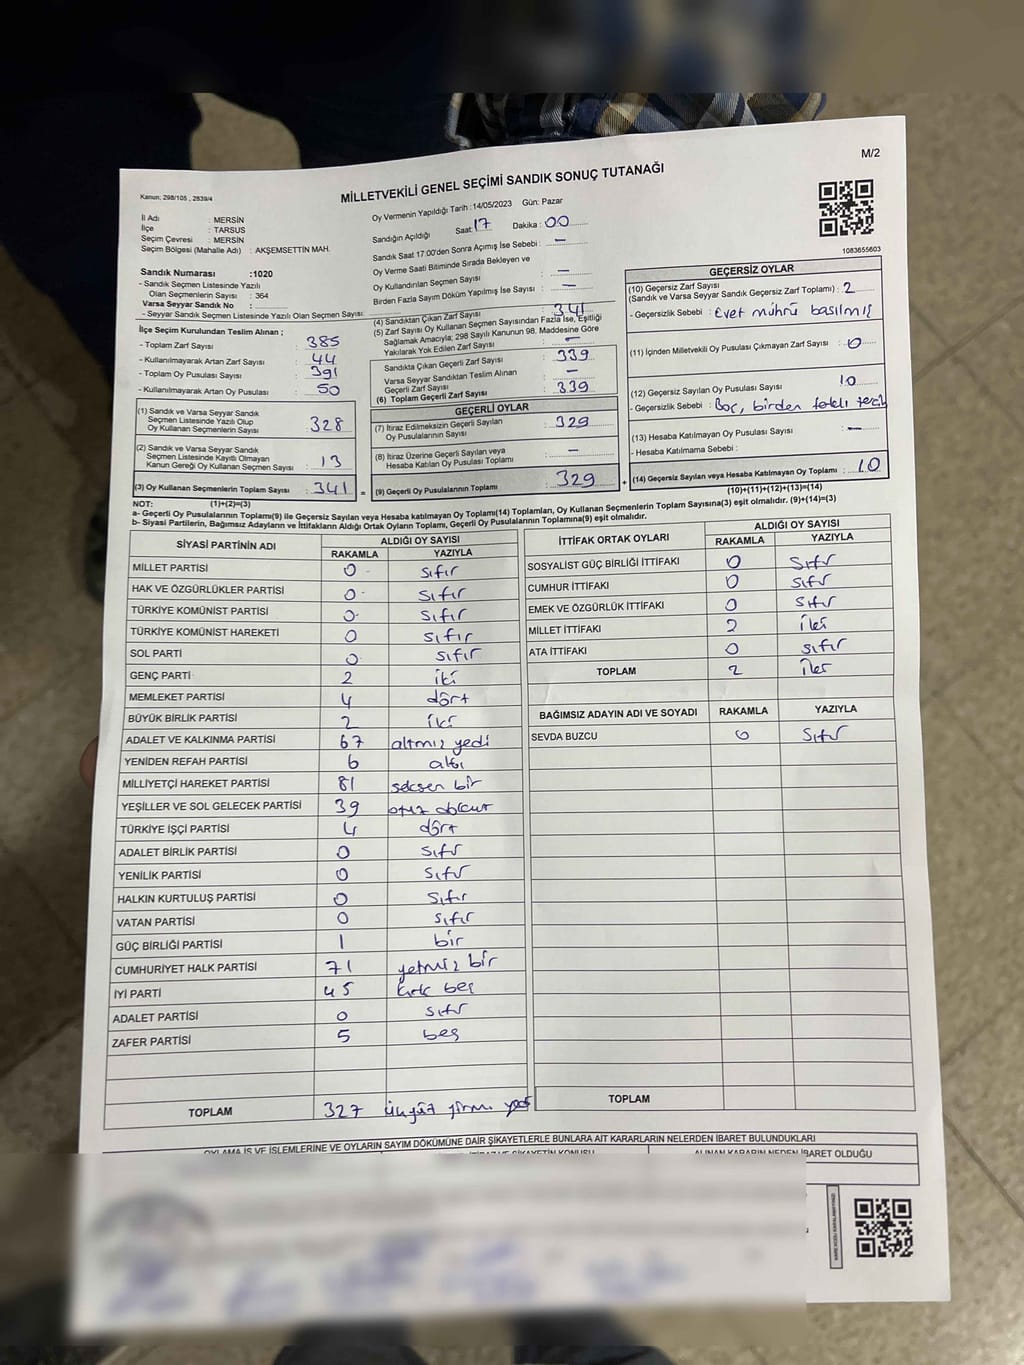 M/2
MİLLETVEKİLİ GENEL SEÇİMİ SANDIK SONUÇ TUTANAĞI
Kanun: 298/105, 2839/4
İl Adı : MERSİN
İlçe : TARSUS
Seçim Çevresi : MERSİN
Seçim Bölgesi (Mahalle Adı) : AKŞEMSETTİN MAH.
Sandık Numarası :1020
- Sandık Seçmen Listesinde Yazılı
Olan Seçmenlerin Sayısı : 364
Varsa Seyyar Sandık No :
- Seyyar Sandık Seçmen Listesinde Yazılı Olan Seçmen Sayısı:
Oy Vermenin Yapıldığı Tarih :14/05/2023 Gün: Pazar
Sandığın Açıldığı Saat: 17 Dakika : 00
Sandık Saat 17:00'den Sonra Açımış İse Sebebi : -
Oy Verme Saati Bitiminde Sırada Bekleyen ve
Oy Kullandırılan Seçmen Sayısı : -
Birden Fazla Sayım Döküm Yapılmış İse Sayısı : -
1083655603
İlçe Seçim Kurulundan Teslim Alınan ;
- Toplam Zarf Sayısı : 385
- Kullanılmayarak Artan Zarf Sayısı : 44
- Toplam Oy Pusulası Sayısı : 391
- Kullanılmayarak Artan Oy Pusulası : 50
(1) Sandık ve Varsa Seyyar Sandık
Seçmen Listesinde Yazılı Olup
Oy Kullanan Seçmenlerin Sayısı : 328
(2) Sandık ve Varsa Seyyar Sandık
Seçmen Listesinde Kayıtlı Olmayan
Kanun Gereği Oy Kullanan Seçmen Sayısı : 13
(3) Oy Kullanan Seçmenlerin Toplam Sayısı : 341 =
(1)+(2)=(3)
(4) Sandıktan Çıkan Zarf Sayısı : 341
(5) Zarf Sayısı Oy Kullanan Seçmen Sayısından Fazla İse, Eşitliği
Sağlamak Amacıyla; 298 Sayılı Kanunun 98. Maddesine Göre
Yakılarak Yok Edilen Zarf Sayısı : -
Sandıkta Çıkan Geçerli Zarf Sayısı : 339
Varsa Seyyar Sandıktan Teslim Alınan
Geçerli Zarf Sayısı : -
(6) Toplam Geçerli Zarf Sayısı : 339
GEÇERLİ OYLAR
(7) İtiraz Edilmeksizin Geçerli Sayılan
Oy Pusulalarının Sayısı : 329
(8) İtiraz Üzerine Geçerli Sayılan veya
Hesaba Katılan Oy Pusulası Toplamı : -
(9) Geçerli Oy Pusulalarının Toplamı : 329 +
GEÇERSİZ OYLAR
(10) Geçersiz Zarf Sayısı
(Sandık ve Varsa Seyyar Sandık Geçersiz Zarf Toplamı) : 2
- Geçersizlik Sebebi : Evet mührü basılmış
(11) İçinden Milletvekili Oy Pusulası Çıkmayan Zarf Sayısı : 0
(12) Geçersiz Sayılan Oy Pusulası Sayısı : 10
- Geçersizlik Sebebi : Boş, birden fazla tercih
(13) Hesaba Katılmayan Oy Pusulası Sayısı : -
- Hesaba Katılmama Sebebi :
(14) Geçersiz Sayılan veya Hesaba Katılmayan Oy Toplamı : 10
(10)+(11)+(12)+(13)=(14)
NOT:
a- Geçerli Oy Pusulalarının Toplamı(9) ile Geçersiz Sayılan veya Hesaba katılmayan Oy Toplamı(14) Toplamları, Oy Kullanan Seçmenlerin Toplam Sayısına(3) eşit olmalıdır. (9)+(14)=(3)
b- Siyasi Partilerin, Bağımsız Adayların ve İttifakların Aldığı Ortak Oyların Toplamı, Geçerli Oy Pusulalarının Toplamına(9) eşit olmalıdır.
SİYASİ PARTİNİN ADI ALDIĞI OY SAYISI
RAKAMLA YAZIYLA
MİLLET PARTİSİ 0 sıfır
HAK VE ÖZGÜRLÜKLER PARTİSİ 0 sıfır
TÜRKİYE KOMÜNİST PARTİSİ 0 sıfır
TÜRKİYE KOMÜNİST HAREKETİ 0 sıfır
SOL PARTİ 0 sıfır
GENÇ PARTİ 2 iki
MEMLEKET PARTİSİ 4 dört
BÜYÜK BİRLİK PARTİSİ 2 iki
ADALET VE KALKINMA PARTİSİ 67 altmış yedi
YENİDEN REFAH PARTİSİ 6 altı
MİLLİYETÇİ HAREKET PARTİSİ 81 seksen bir
YEŞİLLER VE SOL GELECEK PARTİSİ 39 otuz dokuz
TÜRKİYE İŞÇİ PARTİSİ 4 dört
ADALET BİRLİK PARTİSİ 0 sıfır
YENİLİK PARTİSİ 0 sıfır
HALKIN KURTULUŞ PARTİSİ 0 sıfır
VATAN PARTİSİ 0 sıfır
GÜÇ BİRLİĞİ PARTİSİ 1 bir
CUMHURİYET HALK PARTİSİ 71 yetmiş bir
İYİ PARTİ 45 kırk beş
ADALET PARTİSİ 0 sıfır
ZAFER PARTİSİ 5 beş
TOPLAM 327 üçyüz yirmi yedi
İTTİFAK ORTAK OYLARI ALDIĞI OY SAYISI
RAKAMLA YAZIYLA
SOSYALİST GÜÇ BİRLİĞİ İTTİFAKI 0 sıfır
CUMHUR İTTİFAKI 0 sıfır
EMEK VE ÖZGÜRLÜK İTTİFAKI 0 sıfır
MİLLET İTTİFAKI 2 iki
ATA İTTİFAKI 0 sıfır
TOPLAM 2 iki
BAĞIMSIZ ADAYIN ADI VE SOYADI RAKAMLA YAZIYLA
SEVDA BUZCU 0 sıfır
TOPLAM
OYLAMA İŞ VE İŞLEMLERİNE VE OYLARIN SAYIM DÖKÜMÜNE DAİR ŞİKAYETLERLE BUNLARA AİT KARARLARIN NELERDEN İBARET BULUNDUKLARI
ALINAN KARARIN NEDEN İBARET OLDUĞU